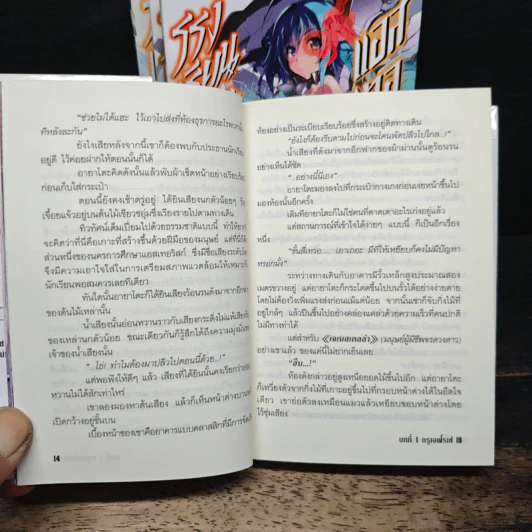 โรงเรียน
"ช่วยไม่ได้แฮะ ไว้เอาไปส่งที่ห้องธุรการอะไรพวก
ทีหลังละกัน"
ยังไงเสียหลังจากนี้เขาก็ต้องพบกับประธานนัก
อยู่ดี ไว้ค่อยฝากให้ตอนนั้นก็ได้
อายาโตะคิดดังนั้นแล้วพับผ้าเช็ดหน้าอย่างเรียบ
ก่อนเก็บใส่กระเป๋า
ตอนนี้ยังคงเช้าตรู่อยู่ ได้ยินเสียงนกตัวน้อยๆ
เจื้อยแจ้วอยู่บนต้นไม้เขียวชอุ่มซึ่งเรียงรายไปตามทางเดิน
ทิวทัศน์เต็มเปี่ยมไปด้วยธรรมชาติแบบนี้ ทำให้
จะคิดว่าที่นี่คือเกาะที่สร้างขึ้นด้วยฝีมือของมนุษย์ แต่ที่นี่
ส่วนหนึ่งของนครการศึกษาแอสเทอริสก์ ซึ่งมีชื่อเสียง
จึงมีความเอาใจใส่ในการเตรียมสภาพแวดล้อมให้เหมาะ
นักเรียนพอสมควรเลยทีเดียว
ทันใดนั้นอายาโตะก็ได้ยินเสียงร้อนรนดังมาจากอีก
ของต้นไม้เหล่านั้น
น้ำเสียงนั้นอ่อนหวานราวกับเสียงกระดิ่งไม่แพ้เสียง
ของเหล่านกตัวน้อย ขณะเดียวกันก็รู้สึกได้ถึงความมุ่ง
เจ้าของน้ำเสียงนั้น
"...โธ่! ทำไมต้องมาปลิวไปตอนนี้ด้วย...!"
แต่พอฟังให้ดีๆ แล้ว เสียงที่ได้ยินนั้นคงเรียกว่าอ่อน
หวานไม่ได้สักเท่าไหร่
เขาลองมองหาต้นเสียง แล้วก็เห็นหน้าต่างบาน
เปิดกว้างอยู่ชั้นบน
เบื้องหน้าของเขาคืออาคารแบบคลาสสิกที่มีการจัด
14
ห้องอย่างเป็นระเบียบเรียบร้อยซึ่งสร้างอยู่ติดทางเดิน
"ยังไงก็ต้องรีบตามไปก่อนจะโดนพัดปลิวไปไกล...!"
น้ำเสียงที่ดังมาจากอีกฝากของผ้าม่านนั้นดูร้อนรน
อย่างเห็นได้ชัด
"...อย่างนี้นี่เอง"
อายาโตะมองลงไปที่กระเป๋ากางเกงก่อนเงยหน้าขึ้นไป
มองห้องนั้นอีกครั้ง
เดิมทีอายาโตะก็ไม่ใช่คนที่คาดเดาอะไรเก่งอยู่แล้ว
แต่สถานการณ์ที่เข้าใจได้ง่ายดายแบบนี้ ก็เป็นอีกเรื่อง
หนึ่ง
"ชั้นสี่เหรอ... เอาเถอะ มีที่ให้เหยียบก็คงไม่มีปัญหา
หรอกมั้ง"
ระหว่างทางเดินกับอาคารมีรั้วเหล็กสูงประมาณสอง
เมตรขวางอยู่ แต่อายาโตะก็กระโดดขึ้นไปบนรั้วได้อย่างง่ายดาย
โดยไม่ต้องวิ่งเพิ่มแรงส่งก่อนแม้แต่น้อย จากนั้นเขาก็จับกิ่งไม้ที่
อยู่ใกล้ๆ แล้วปีนขึ้นไปอย่างคล่องแคล่วด้วยความเร็วที่คนปกติ
ไม่มีทางทำได้
แต่สำหรับ 《เจเนสเตลล่า》 (มนุษย์ผู้มีชีพจรดวงดาว)
อย่างเขาแล้ว ของแค่นี้ไม่ยากเย็นเลย
"ฮึบ...!"
ห้องดังกล่าวอยู่สูงเหนือยอดไม้ขึ้นไปอีก แต่อายาโตะ
ก็เหวี่ยงตัวจากกิ่งไม้ที่เกาะอยู่ขึ้นไปที่กรอบหน้าต่างได้ในอึดใจ
เดียว เขาย่อตัวลงเหมือนแมวแล้วเหยียบขอบหน้าต่างโดย
ไร้ซุ่มเสียง
บทที่ 1 กรูเอนโรเซ่ 15